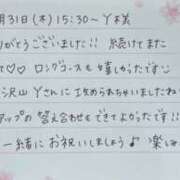 月31日(木)15:30~Y様
がとうございました!! 続けてまた
て♡♡ ロングコースも嬉しかったです
沢山Yさんに攻められちゃいましたね
アップの答え合わせもできてよかったです
一緒にお祝いしましょう♪ 楽し